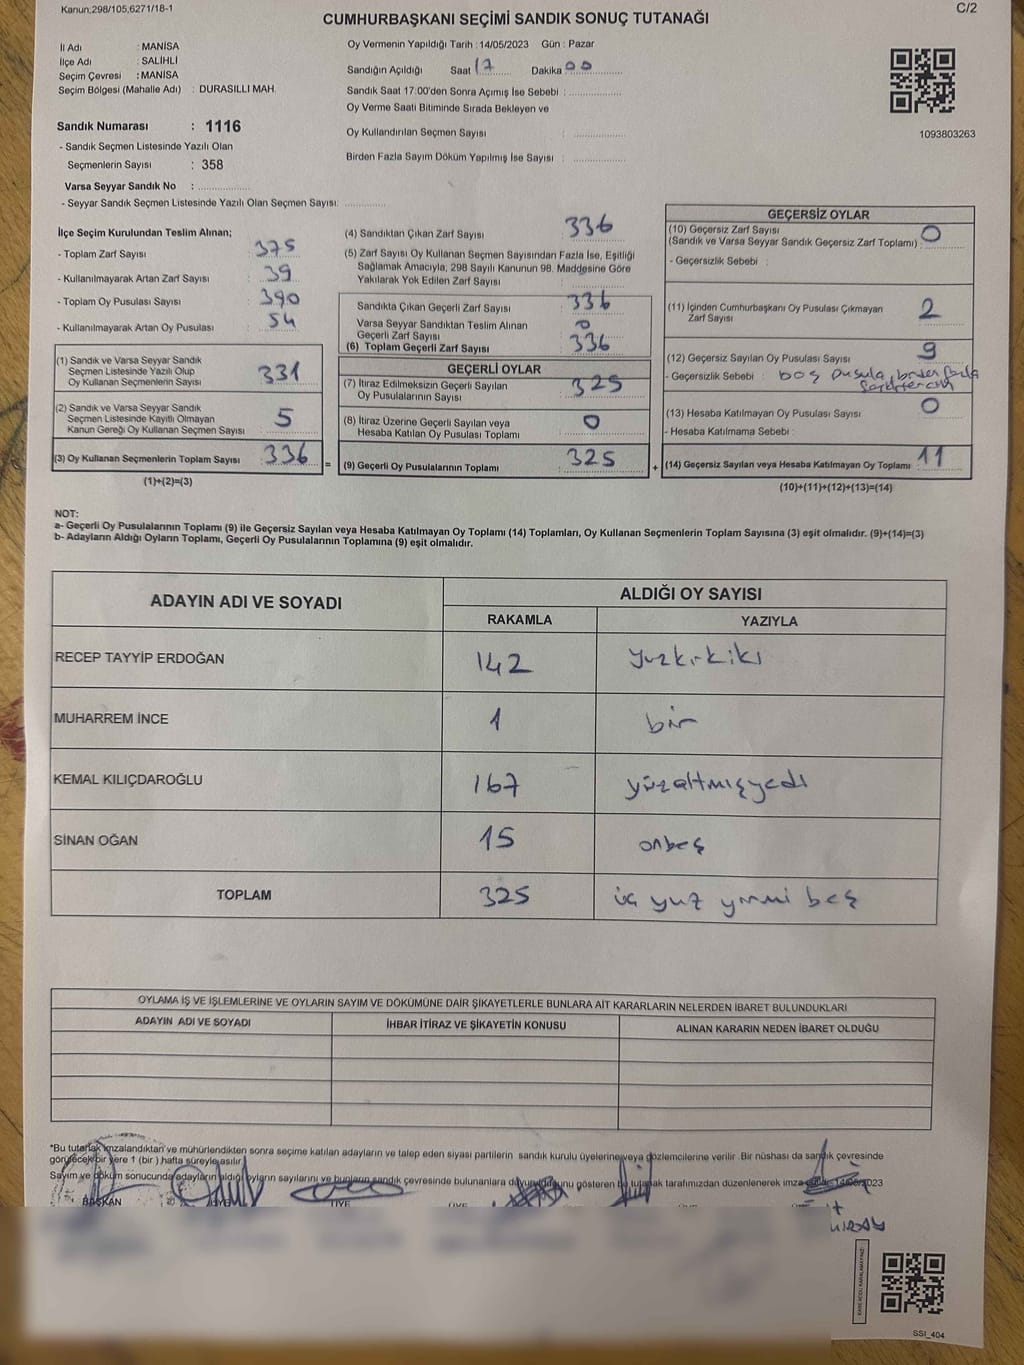 Kanun,298/105,6271/18-1
C/2
CUMHURBAŞKANI SEÇİMİ SANDIK SONUÇ TUTANAĞI
İl Adı : MANİSA
İlçe Adı : SALİHLİ
Seçim Çevresi : MANİSA
Seçim Bölgesi (Mahalle Adı) : DURASILLI MAH.
Sandık Numarası : 1116
- Sandık Seçmen Listesinde Yazılı Olan
Seçmenlerin Sayısı : 358
Varsa Seyyar Sandık No : ..................
- Seyyar Sandık Seçmen Listesinde Yazılı Olan Seçmen Sayısı: ..............
Oy Vermenin Yapıldığı Tarih :14/05/2023 Gün : Pazar
Sandığın Açıldığı Saat 17 Dakika 00
Sandık Saat 17:00'den Sonra Açımış İse Sebebi : ..................
Oy Verme Saati Bitiminde Sırada Bekleyen ve
Oy Kullandırılan Seçmen Sayısı : ..................
Birden Fazla Sayım Döküm Yapılmış İse Sayısı : ..................
1093803263
İlçe Seçim Kurulundan Teslim Alınan;
- Toplam Zarf Sayısı : 375
- Kullanılmayarak Artan Zarf Sayısı : 39
- Toplam Oy Pusulası Sayısı : 390
- Kullanılmayarak Artan Oy Pusulası : 54
(1) Sandık ve Varsa Seyyar Sandık
Seçmen Listesinde Yazılı Olup
Oy Kullanan Seçmenlerin Sayısı : 331
(2) Sandık ve Varsa Seyyar Sandık
Seçmen Listesinde Kayıtlı Olmayan
Kanun Gereği Oy Kullanan Seçmen Sayısı : 5
(3) Oy Kullanan Seçmenlerin Toplam Sayısı : 336 =
(1)+(2)=(3)
(4) Sandıktan Çıkan Zarf Sayısı : 336
(5) Zarf Sayısı Oy Kullanan Seçmen Sayısından Fazla İse, Eşitliği
Sağlamak Amacıyla, 298 Sayılı Kanunun 98. Maddesine Göre
Yakılarak Yok Edilen Zarf Sayısı : ..................
Sandıkta Çıkan Geçerli Zarf Sayısı : 336
Varsa Seyyar Sandıktan Teslim Alınan
Geçerli Zarf Sayısı : 0
(6) Toplam Geçerli Zarf Sayısı : 336
GEÇERLİ OYLAR
(7) İtiraz Edilmeksizin Geçerli Sayılan
Oy Pusulalarının Sayısı : 325
(8) İtiraz Üzerine Geçerli Sayılan veya
Hesaba Katılan Oy Pusulası Toplamı : 0
(9) Geçerli Oy Pusulalarının Toplamı : 325 +
GEÇERSİZ OYLAR
(10) Geçersiz Zarf Sayısı
(Sandık ve Varsa Seyyar Sandık Geçersiz Zarf Toplamı) : 0
- Geçersizlik Sebebi :
(11) İçinden Cumhurbaşkanı Oy Pusulası Çıkmayan
Zarf Sayısı : 2
(12) Geçersiz Sayılan Oy Pusulası Sayısı : 9
- Geçersizlik Sebebi : boş pusula, birden fazla
(13) Hesaba Katılmayan Oy Pusulası Sayısı : 0
- Hesaba Katılmama Sebebi :
(14) Geçersiz Sayılan veya Hesaba Katılmayan Oy Toplamı : 11
(10)+(11)+(12)+(13)=(14)
NOT:
a- Geçerli Oy Pusulalarının Toplamı (9) ile Geçersiz Sayılan veya Hesaba Katılmayan Oy Toplamı (14) Toplamları, Oy Kullanan Seçmenlerin Toplam Sayısına (3) eşit olmalıdır. (9)+(14)=(3)
b- Adayların Aldığı Oyların Toplamı, Geçerli Oy Pusulalarının Toplamına (9) eşit olmalıdır.
ADAYIN ADI VE SOYADI ALDIĞI OY SAYISI
RAKAMLA YAZIYLA
RECEP TAYYİP ERDOĞAN 142 yuzkırkiki
MUHARREM İNCE 1 bir
KEMAL KILIÇDAROĞLU 167 yüzaltmışyedi
SİNAN OĞAN 15 onbeş
TOPLAM 325 üç yuz yirmi beş
OYLAMA İŞ VE İŞLEMLERİNE VE OYLARIN SAYIM VE DÖKÜMÜNE DAİR ŞİKAYETLERLE BUNLARA AİT KARARLARIN NELERDEN İBARET BULUNDUKLARI
ADAYIN ADI VE SOYADI İHBAR İTİRAZ VE ŞİKAYETİN KONUSU ALINAN KARARIN NEDEN İBARET OLDUĞU
*Bu tutanak imzalandıktan ve mühürlendikten sonra seçime katılan adayların ve talep eden siyasi partilerin sandık kurulu üyelerine veya gözlemcilerine verilir .Bir nüshası da sandık çevresinde
görülecek bir yere 1 (bir ) hafta süreyle asılır
Sayım ve döküm sonucunda adayların aldığı oyların sayılarını ve bunların sandık çevresinde bulunanlara duyurulduğunu gösteren bu tutanak tarafımızdan düzenlenerek imza 14/05/2023
BAŞKAN ÜYE ÜYE
SSİ_404